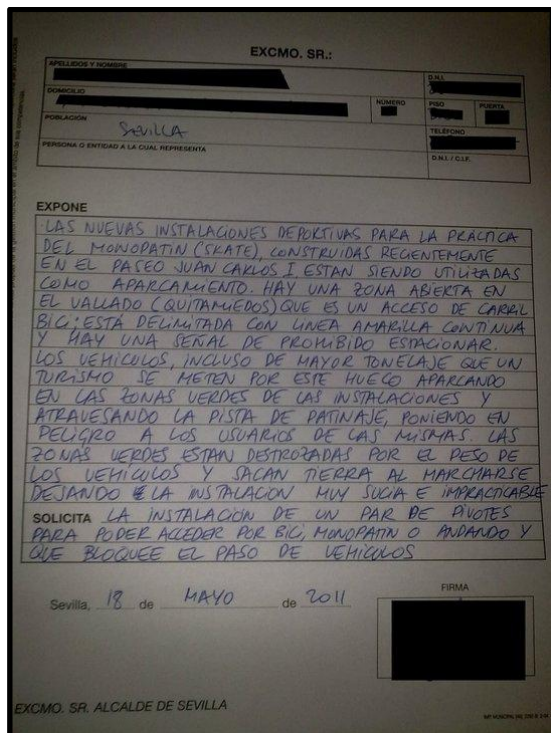 EXCMO. SR.:
APELLIDOS Y NOMBRE
D.N.I.
DOMICILIO
NÚMERO
PISO
PUERTA
POBLACIÓN
SEVILLA
TELÉFONO
PERSONA O ENTIDAD A LA CUAL REPRESENTA
D.N.I. / C.I.F.
EXPONE
LAS NUEVAS INSTALACIONES DEPORTIVAS PARA LA PRÁCTICA
DEL MONOPATÍN (SKATE), CONSTRUIDAS RECIENTEMENTE
EN EL PASEO JUAN CARLOS I ESTAN SIENDO UTILIZADAS
COMO APARCAMIENTO. HAY UNA ZONA ABIERTA EN
EL VALLADO (QUITAMIEDOS) QUE ES UN ACCESO DE CARRIL
BICI; ESTÁ DELIMITADA CON LINEA AMARILLA CONTINUA
Y HAY UNA SEÑAL DE PROHIBIDO ESTACIONAR.
LOS VEHÍCULOS, INCLUSO DE MAYOR TONELAJE QUE UN
TURISMO SE METEN POR ESTE HUECO APARCANDO
EN LAS ZONAS VERDES DE LAS INSTALACIONES Y
ATRAVESANDO LA PISTA DE PATINAJE, PONIENDO EN
PELIGRO A LOS USUARIOS DE LAS MISMAS. LAS
ZONAS VERDES ESTAN DESTROZADAS POR EL PESO DE
LOS VEHÍCULOS Y SACAN TIERRA AL MARCHARSE
DEJANDO LA INSTALACIÓN MUY SUCIA E IMPRACTICABLE
SOLICITA LA INSTALACIÓN DE UN PAR DE PIVOTES
PARA PODER ACCEDER POR BICI, MONOPATÍN O ANDANDO Y
QUE BLOQUEE EL PASO DE VEHÍCULOS
Sevilla, 18 de MAYO de 2011
FIRMA
EXCMO. SR. ALCALDE DE SEVILLA